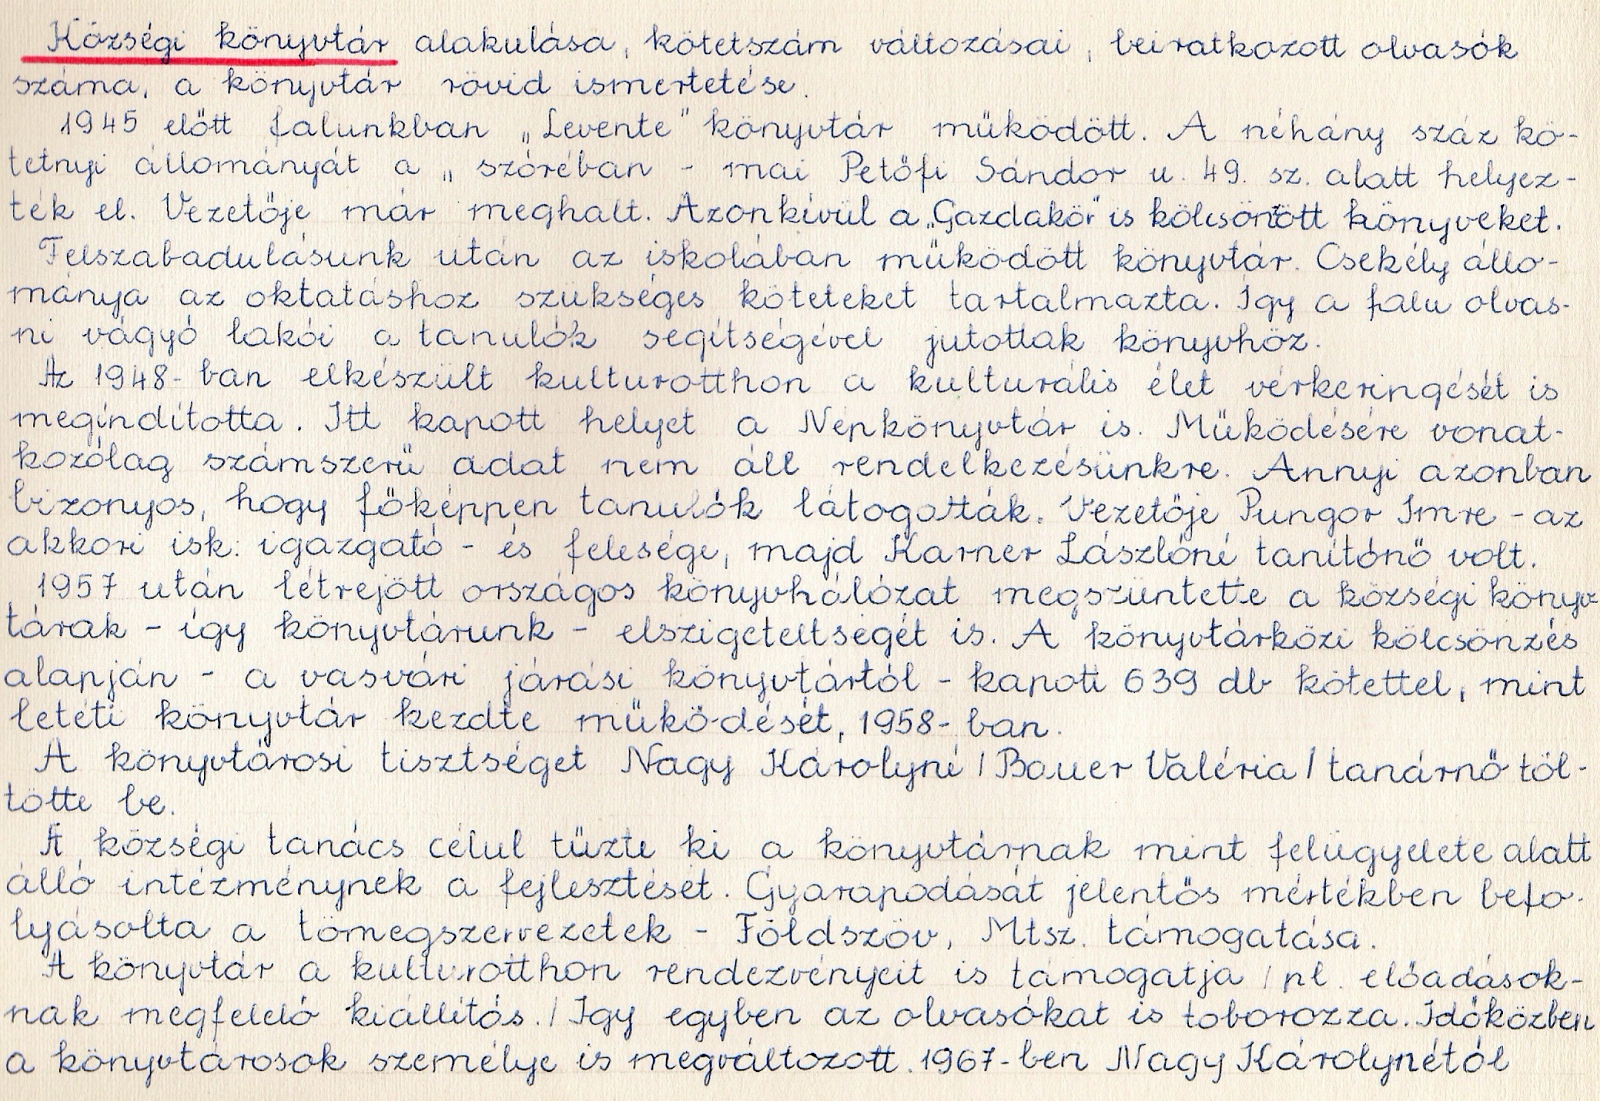 Községi könyvtár alakulása, kötetszám változásai, beiratkozott olvasók
száma, a könyvtár rövid ismertetése.
1945 előtt falunkban „Levente" könyvtár működött. A néhány száz kö-
tetnyi állományát a „ szóréban - mai Petőfi Sándor u. 49. sz. alatt helyez-
ték el. Vezetője már meghalt. Azonkívül a „Gazdakör" is kölcsönött könyveket.
Felszabadulásunk után az iskolában működött könyvtár. Csekély állo-
mánya az oktatáshoz szükséges köteteket tartalmazta. Igy a falu olvas-
ni vágyó lakói a tanulók segítségével jutottak könyvhöz.
Az 1948-ban elkészült kulturotthon a kulturális élet vérkeringését is
megindította. Itt kapott helyet a Népkönyvtár is. Működésére vonat-
kozólag számszerű adat nem áll rendelkezésünkre. Annyi azonban
bizonyos, hogy főképpen tanulók látogatták. Vezetője Pungor Imre - az
akkori isk. igazgató - és felesége, majd Karner Lászlóné tanítónő volt.
1957 után létrejött országos könyvhálózat megszüntette a községi könyv
tárak - így könyvtárunk - elszigeteltségét is. A könyvtárközi kölcsönzés
alapján - a vasvári járási könyvtártól - kapott 639 db kötettel, mint
letéti könyvtár kezdte működését, 1958-ban.
A könyvtárosi tisztséget Nagy Károlyné / Bauer Valéria / tanárnő töl-
tötte be.
A községi tanács célul tűzte ki a könyvtárnak mint felügyelete alatt
álló intézménynek a fejlesztését. Gyarapodását jelentős mértékben befo-
lyásolta a tömegszervezetek - Földszöv, Mtsz. támogatása.
A könyvtár a kulturotthon rendezvényeit is támogatja / pl. előadások-
nak megfelelő kiállítás. / Igy egyben az olvasókat is toborozza. Időközben
a könyvtárosok személye is megváltozott. 1967-ben Nagy Károlynétól